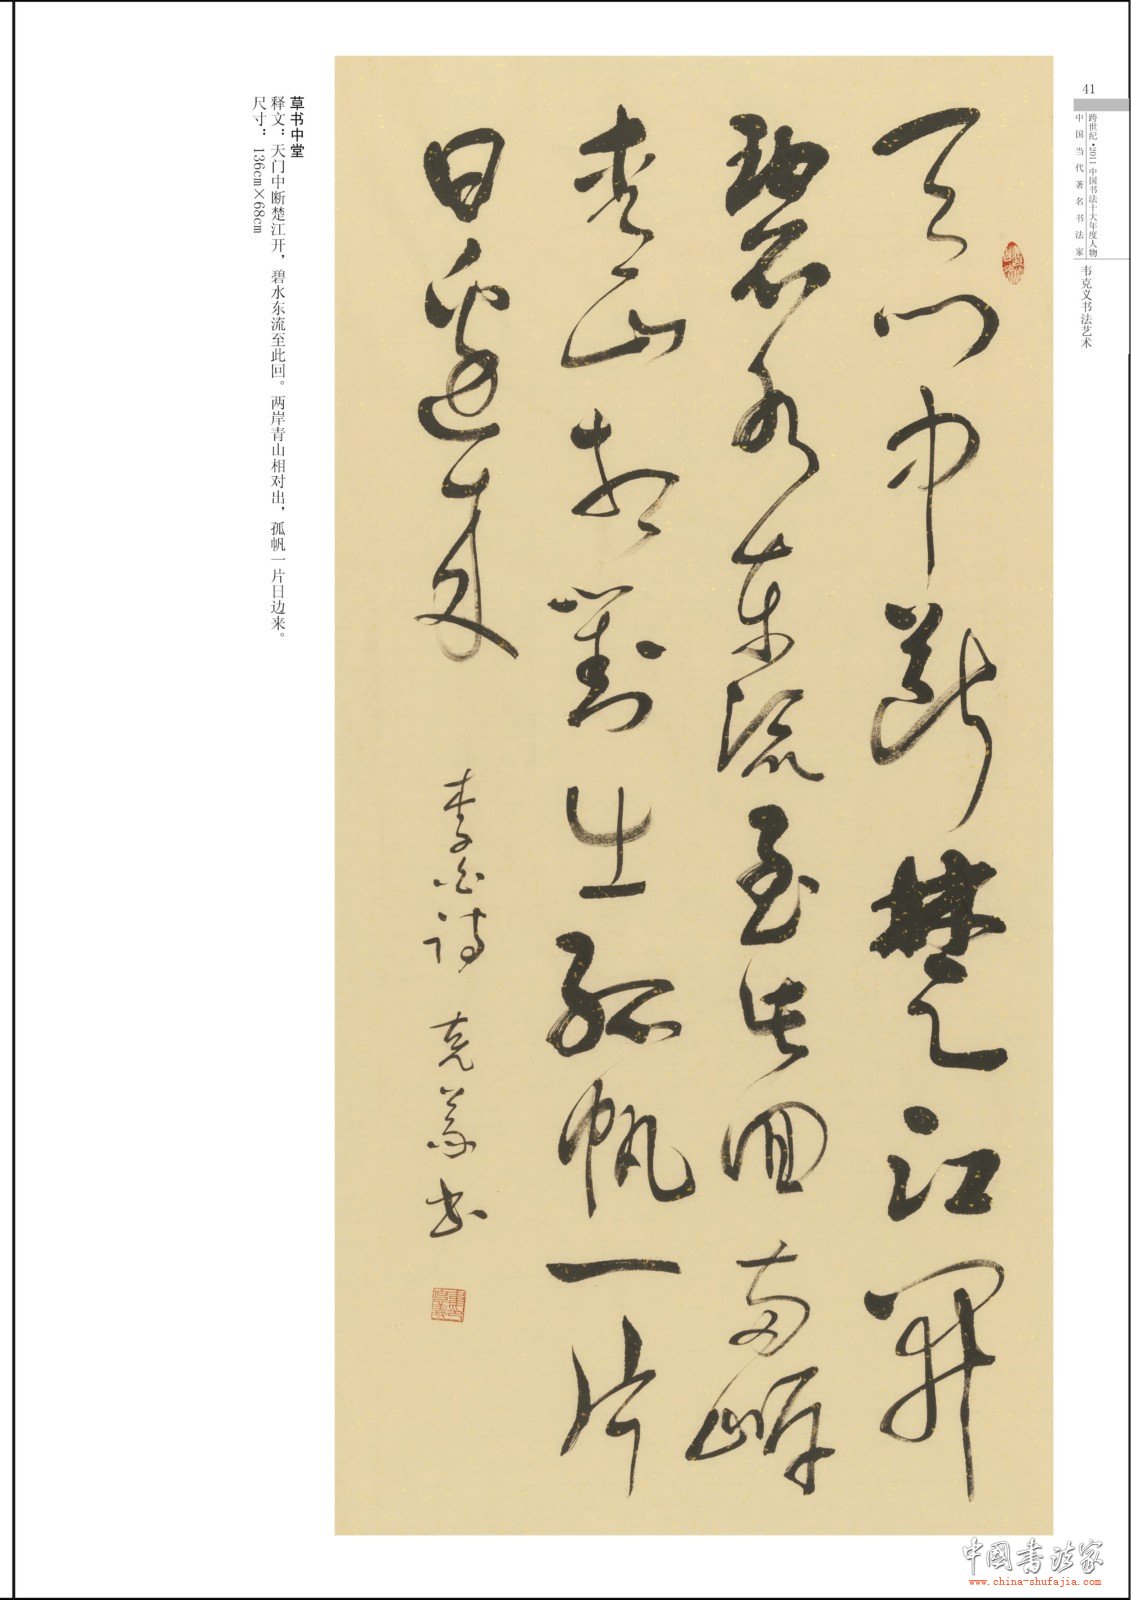 41
跨世纪·2011中国书法十大年度人物
中国当代著名书法家
韦克义书法艺术
天门中断楚江开
碧水东流至此回两岸
青山相对出孤帆一片
日边来
李白诗 克义书
草书中堂
释文：天门中断楚江开，碧水东流至此回。两岸青山相对出，孤帆一片日边来。
尺寸：136cm×68cm
中国书法家
www.china-shufajia.com